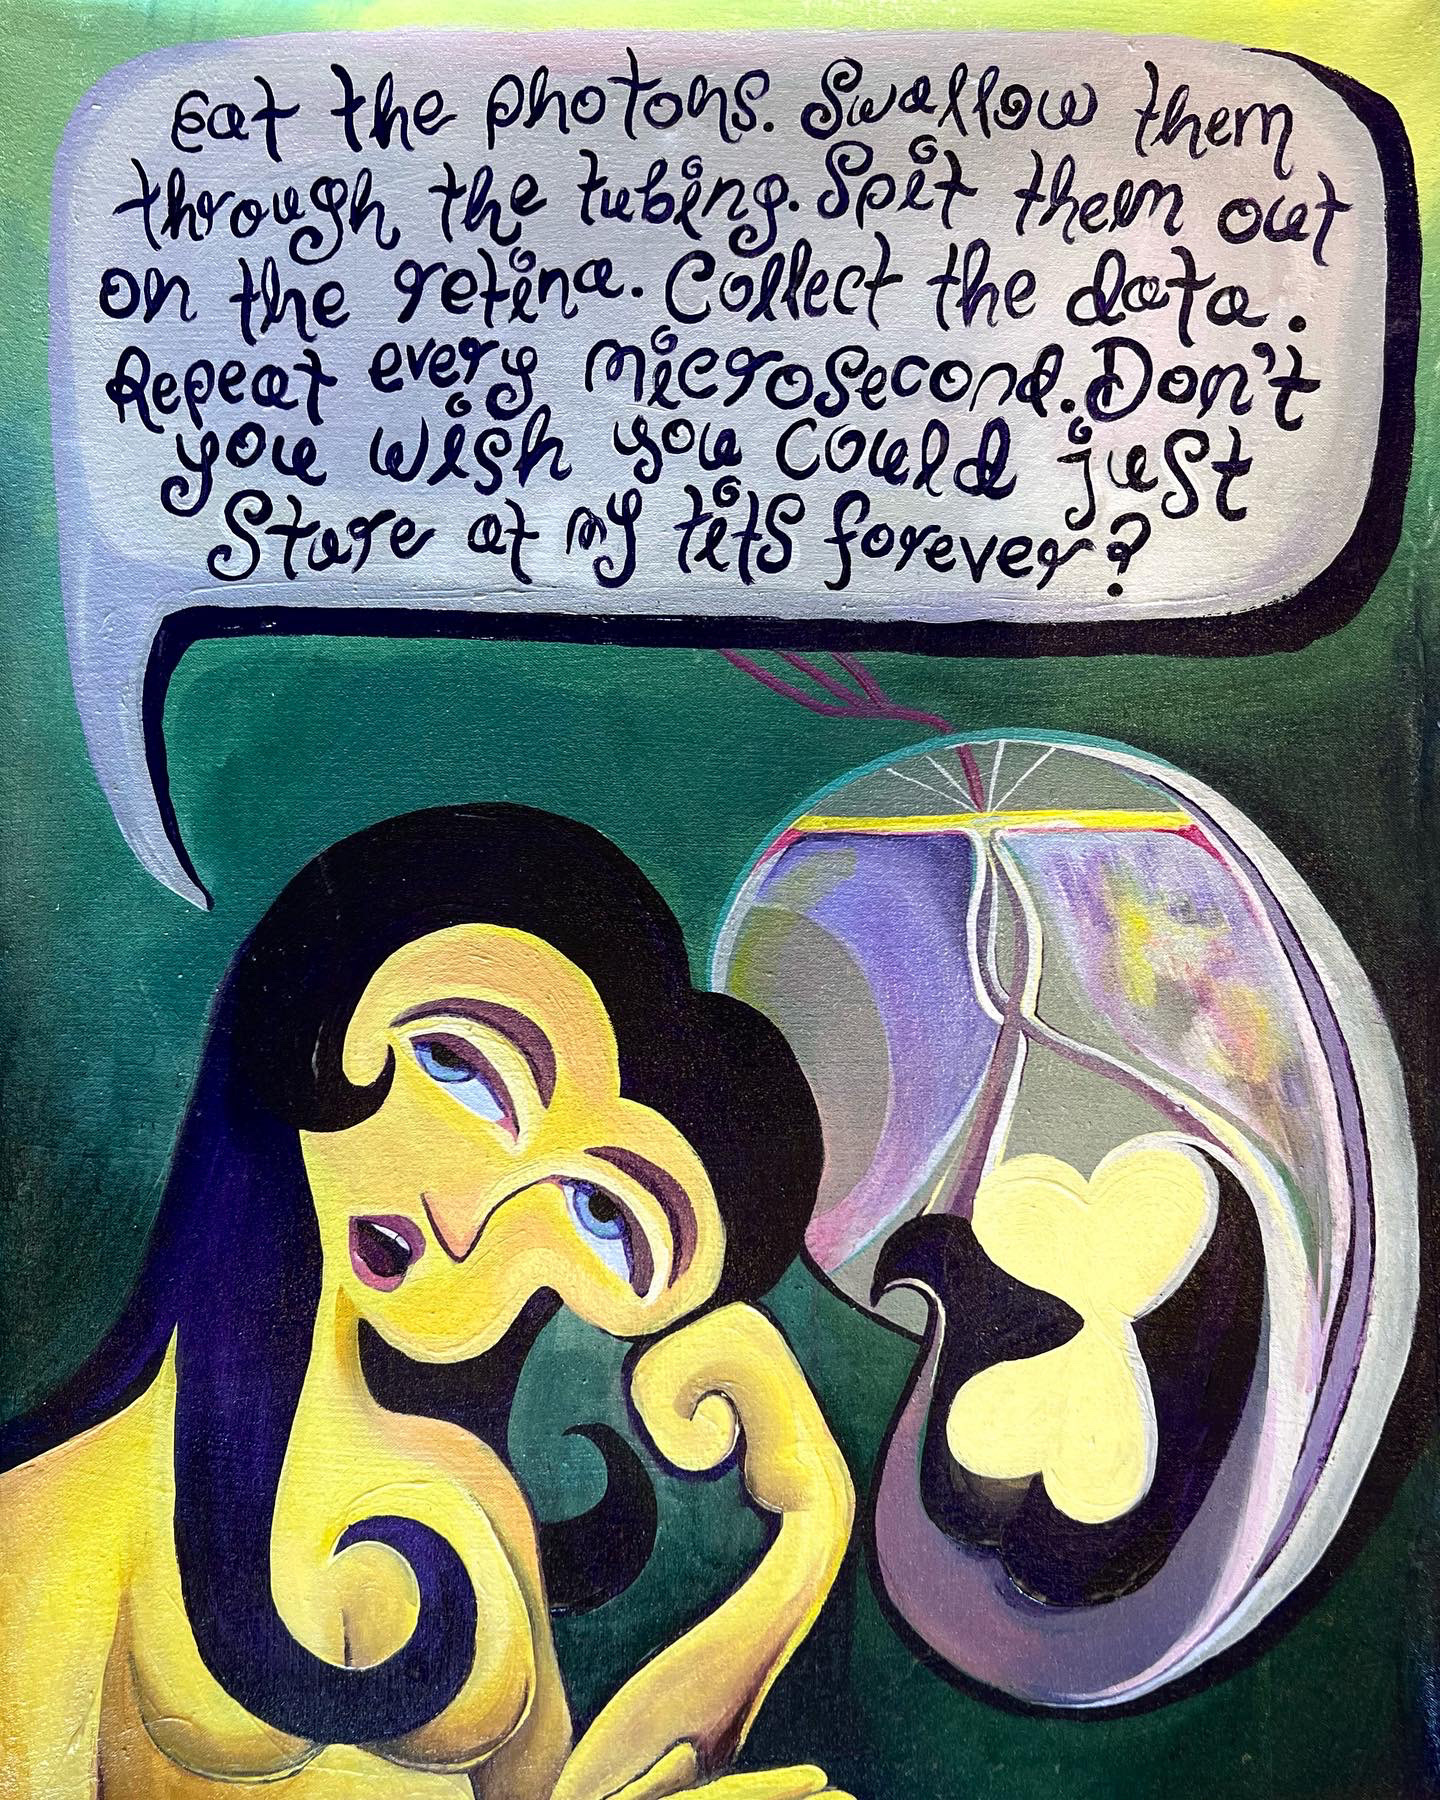 Eat the photons. Swallow them
through the tubing. Spit them out
on the retina. Collect the data.
Repeat every microsecond. Don't
you wish you could just
Stare at my tits forever?